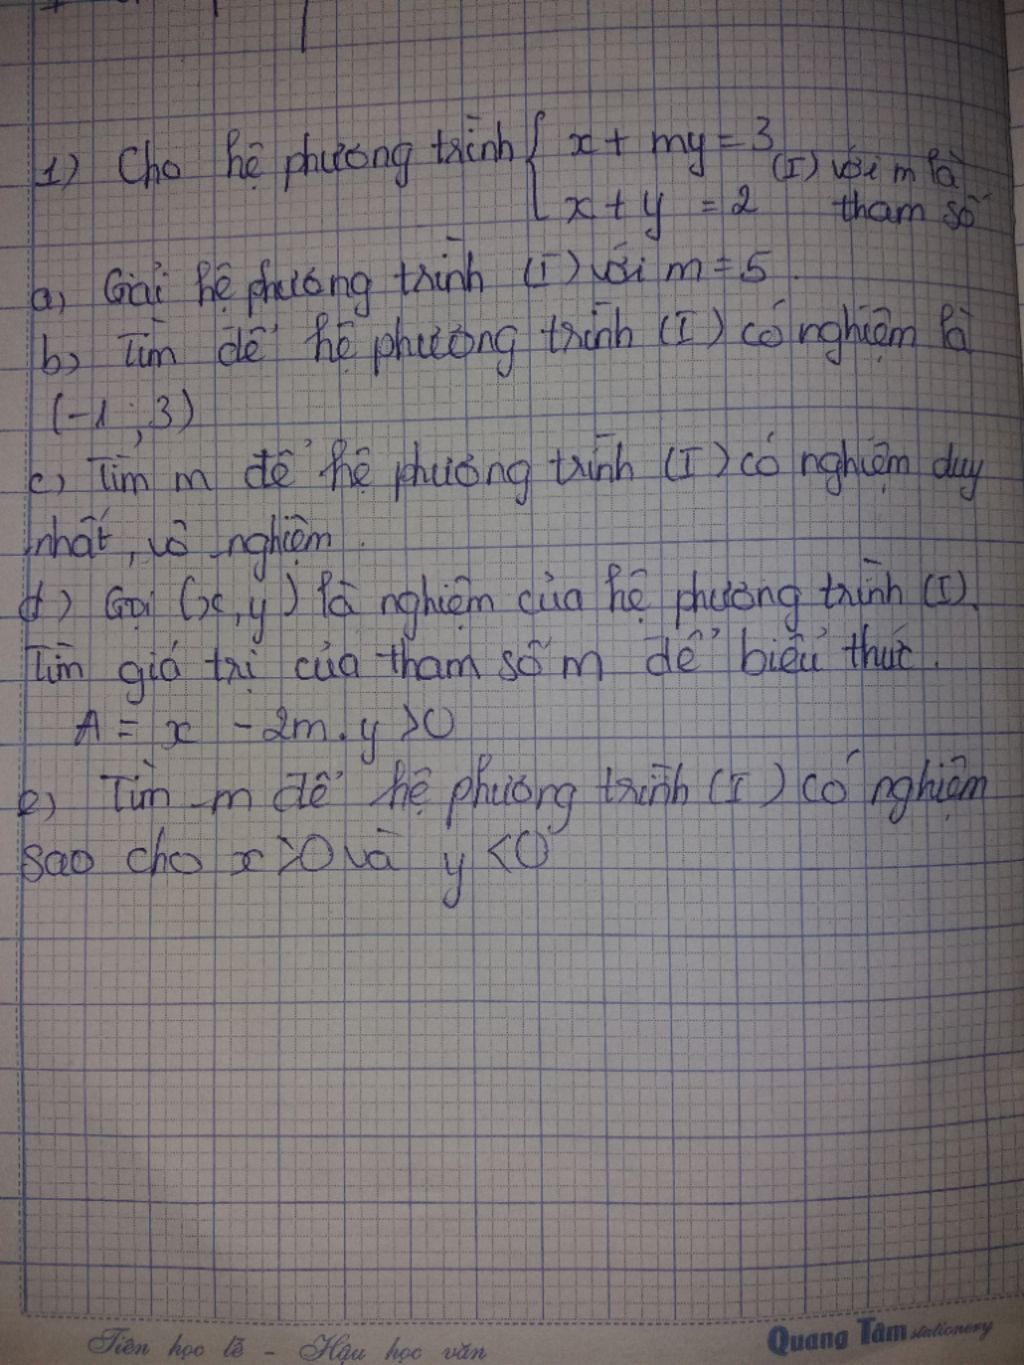 1) Cho hệ phương trình { x + my = 3 (I) với m là
x + y = 2 tham số
a) Giải hệ phương trình (I) với m = 5.
b) Tìm để hệ phương trình (I) có nghiệm là
(-1 ; 3)
c) Tìm m để hệ phương trình (I) có nghiệm duy
nhất, vô nghiệm.
d) Gọi (x, y) là nghiệm của hệ phương trình (I).
Tìm giá trị của tham số m để biểu thức.
A = x - 2m.y > 0
e) Tìm m để hệ phương trình (I) có nghiệm
sao cho x > 0 và y < 0
Tiên học lễ - Hậu học văn
Quang Tâm stationery